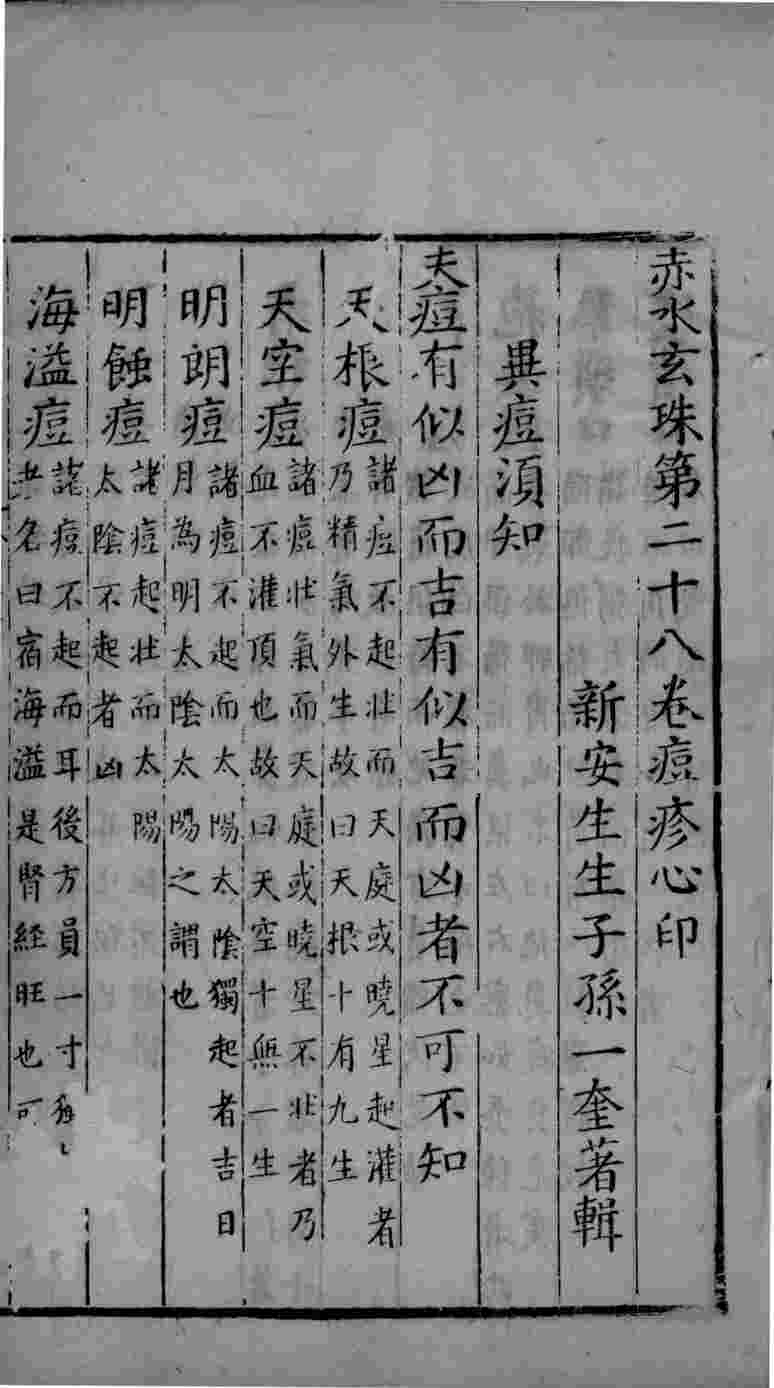 赤水玄珠第二十八卷痘疹心印
新安生生子孫一奎著輯
異痘須知
夫痘有似凶而吉有似吉而凶者不可不知
天根痘
諸痘不起壯而天庭或曉星起灌者
乃精氣外生故曰天根十有九生
天空痘
諸痘壯氣而天庭或曉星不壯者乃
血不灌頂也故曰天空十無一生
明朗痘
諸痘不起而太陽太陰獨起者吉日
月為明太陰太陽之謂也
明蝕痘
諸痘起壯而太陽
太陰不起者凶
海溢痘
諸痘不起而耳後方員一寸
名曰宿海溢是腎経旺也可